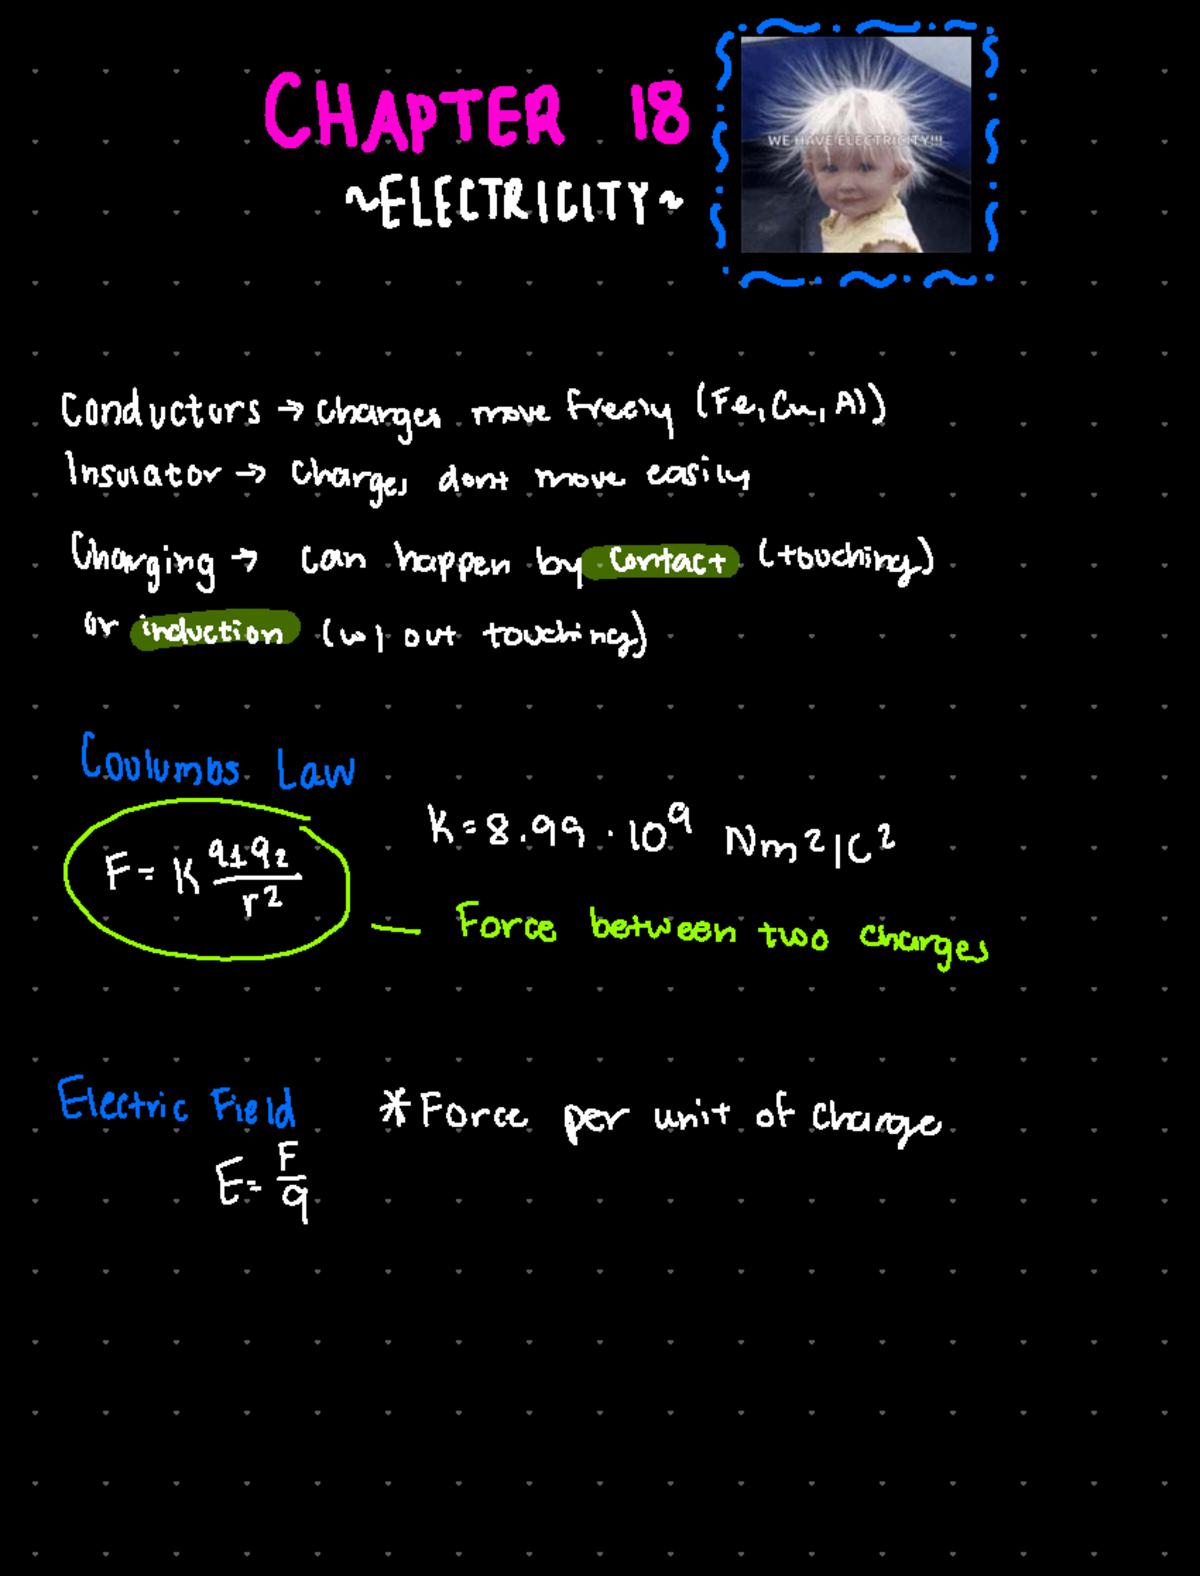 CHAPTER 18
~ELECTRICITY~
WE HAVE ELECTRICITY!!!
Conductors → charges move freely (Fe, Cu, Al)
Insulator → charges dont move easily
Charging → can happen by contact (touching)
or induction (w/out touching)
Coulumbs Law
F = K q1q2/r²
K = 8.99 · 10⁹ Nm²/C²
— Force between two charges
Electric Field *Force per unit of charge
E = F/q